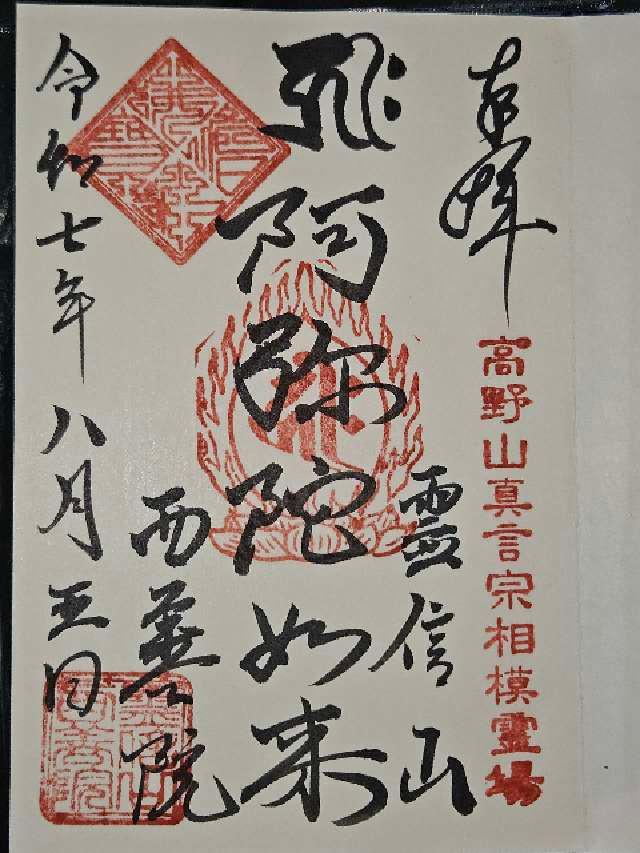 奉拝
高野山真言宗相模霊場
霊信山
阿弥陀如来
西善院
令和七年八月五日